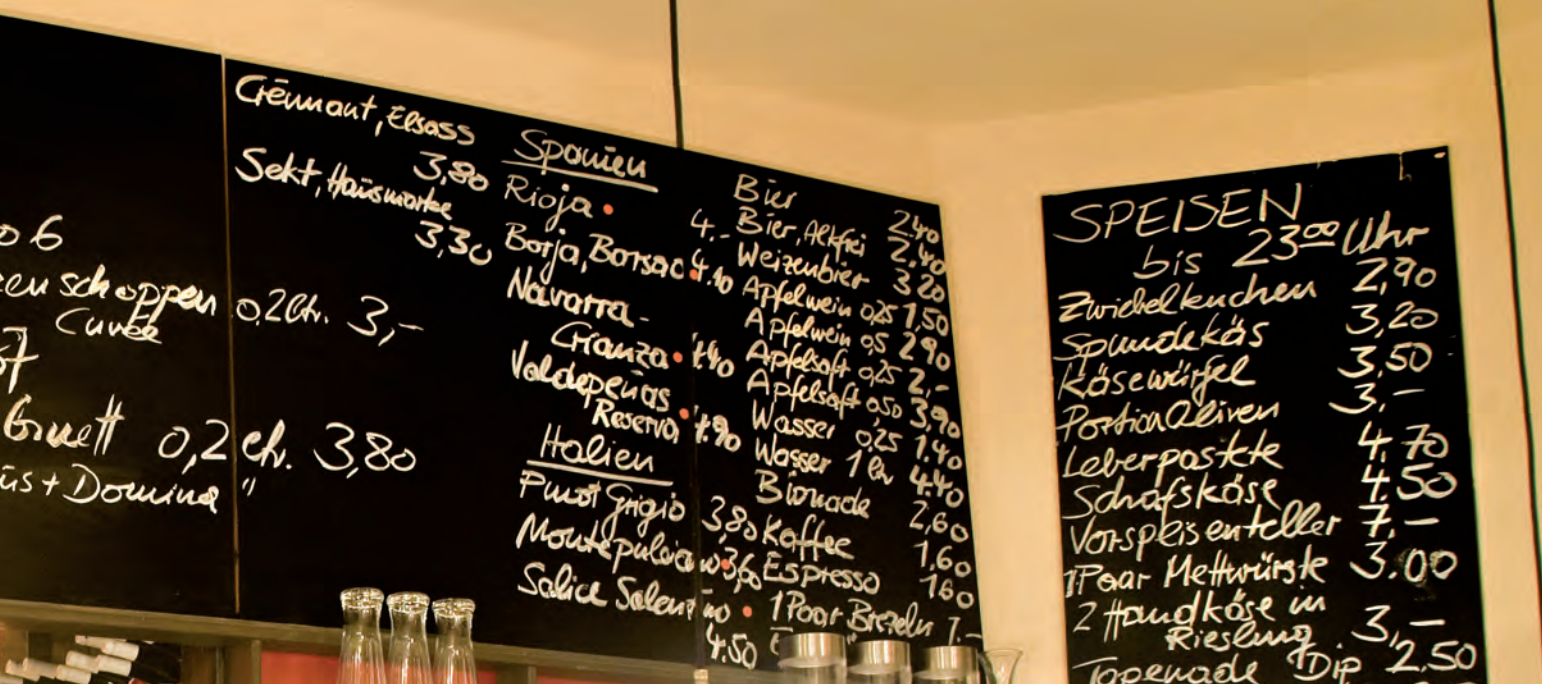 o 6
schoppen 0,2 ltr. 3,–
Cuvée
7
0,2 ltr. 3,80
+ Domina "
Crémant, Elsass
3,80
Sekt, Hausmarke
3,30
Spanien
Rioja 4.-
Borja, Borsao 4.10
Navarra -
Crianza 4.40
Valdepeñas
Reserva 4.90
Italien
Pinot Grigio 3,80
Montepulciano 3,60
Salice Salentino
4.50
Bier 2.40
Bier, Alkfrei 2,40
Weizenbier 3 20
Apfelwein 0,25 1,50
Apfelwein 0,5 2 90
Apfelsaft 0,25 2,-
Apfelsaft 0,50 3,90
Wasser 0,25 1.40
Wasser 1 ltr 4.40
Bionade 2,60
Kaffee 1,60
Espresso 160
1 Paar Brezeln 1.-
SPEISEN
bis 23 00 Uhr
Zwiebelkuchen 2,90
Spundekäs 3,20
Käsewürfel 3,50
Portion Oliven 3,-
Leberpastete 4.70
Schafskäse 4.50
Vorspeisenteller 7,-
1 Paar Mettwürste 3.00
2 Handkäse in
Riesling 3,-
Tapenade Dip 2,50